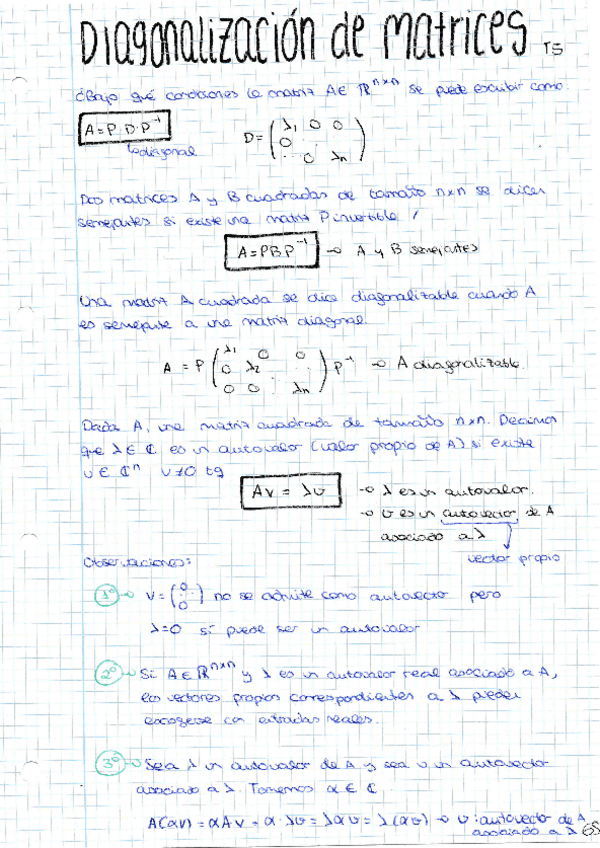 Diagonalización de matrices T5
¿Bajo qué condiciones la matriz A ∈ ℝⁿˣⁿ se puede escribir como:
A = P·D·P⁻¹ D = (λ₁ 0 0
0 ⋱
0 λn)
↳ diagonal
Dos matrices A y B cuadradas de tamaño nxn se dicen
semejantes si existe una matriz P invertible /
A = PBP⁻¹ → A y B semejantes
Una matriz A cuadrada se dice diagonalizable cuando A
es semejante a una matriz diagonal.
A = P (λ₁ 0 0
0 λ₂ ⋮
0 0 λn) P⁻¹ → A diagonalizable.
Dada A, una matriz cuadrada de tamaño nxn. Decimos
que λ ∈ ℂ es un autovalor (valor propio de A) si existe
v ∈ ℂⁿ v≠0 tq
Av = λv → λ es un autovalor.
→ v es un autovector de A
asociado a λ
vector propio
Observaciones:
1º → v = (0 ⋮ 0) no se admite como autovector pero
λ=0 sí puede ser un autovalor
2º → Si A ∈ ℝⁿˣⁿ y λ es un autovalor real asociado a A,
los vectores propios correspondientes a λ pueden
escogerse con entradas reales.
3º → Sea λ un autovalor de A y sea v un autovector
asociado a λ. Tomemos α ∈ ℂ
A(αv) = αAv = α·λv = λαv = λ(αv) → v: autovector de A
asociado a λ